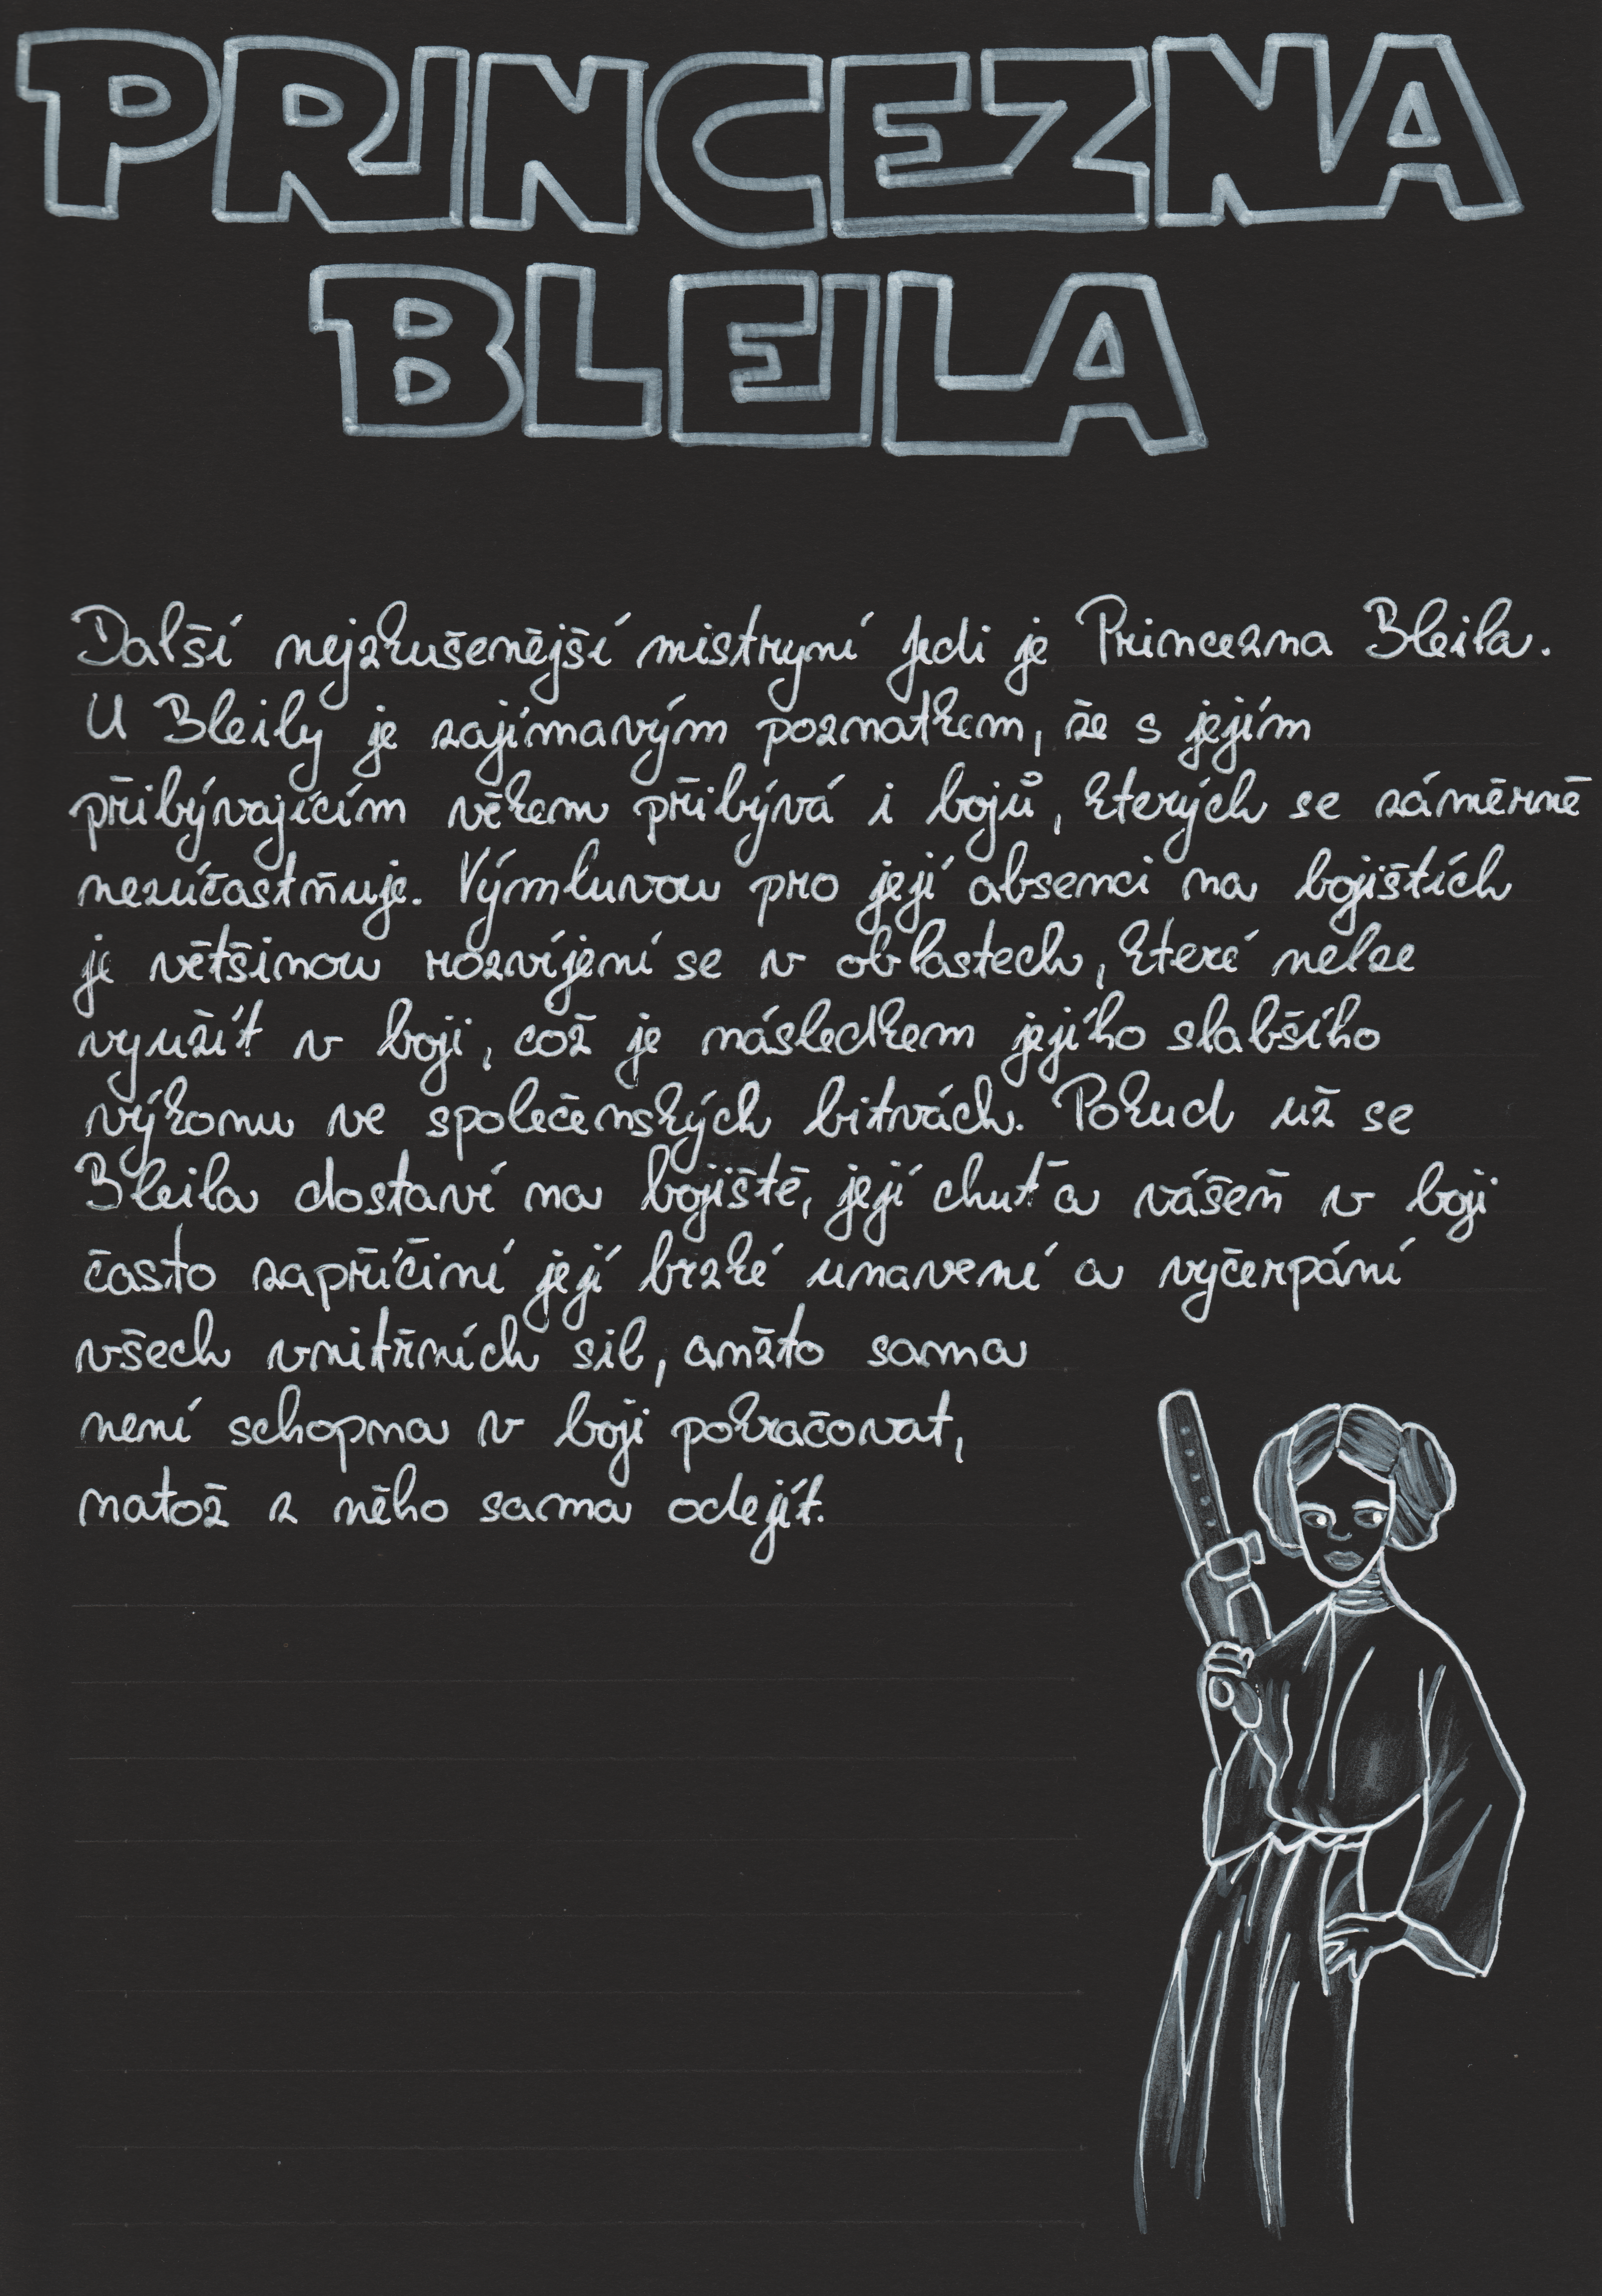 PRINCEZNA
BLEILA
Další nejzkušenější mistryní Jedi je Princezna Bleila.
U Bleily je zajímavým poznatkem, že s jejím
přibývajícím věkem přibývá i bojů, kterých se záměrně
nezúčastňuje. Výmluvou pro její absenci na bojištích
je většinou rozvíjení se v oblastech, které nelze
využít v boji, což je následkem jejího slabšího
výkonu ve společenských bitvách. Pokud už se
Bleila dostaví na bojiště, její chuť a vášeň v boji
často zapříčiní její brzké unavení a vyčerpání
všech vnitřních sil, anžto sama
není schopna v boji pokračovat,
natož z něho sama odejít.